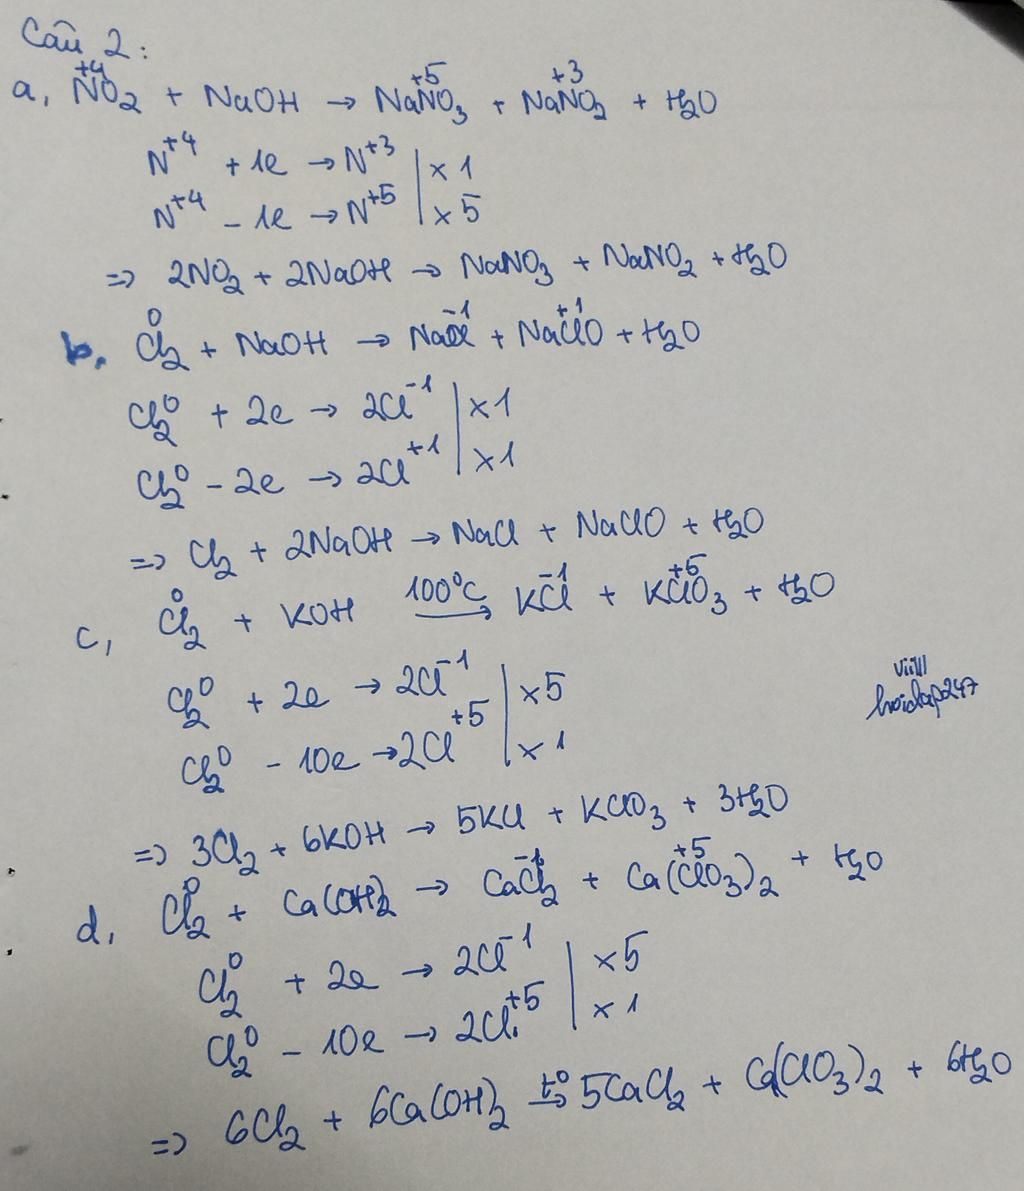 Câu 2:
a, N⁺⁴O₂ + NaOH → NaN⁺⁵O₃ + NaN⁺³O₂ + H₂O
N⁺⁴ + 1e → N⁺³ | x 1
N⁺⁴ - 1e → N⁺⁵ | x 5
=> 2NO₂ + 2NaOH → NaNO₃ + NaNO₂ + H₂O
b, Cl⁰₂ + NaOH → NaCl⁻¹ + NaCl⁺¹O + H₂O
Cl₂⁰ + 2e → 2Cl⁻¹ | x1
Cl₂⁰ - 2e → 2Cl⁺¹ | x1
=> Cl₂ + 2NaOH → NaCl + NaClO + H₂O
c, Cl⁰₂ + KOH 100°C → KCl⁻¹ + KCl⁺⁵O₃ + H₂O
Cl₂⁰ + 2e → 2Cl⁻¹ | x5
Cl₂⁰ - 10e → 2Cl⁺⁵ | x 1
viilll
hoidap247
=> 3Cl₂ + 6KOH → 5KCl + KClO₃ + 3H₂O
d, Cl⁰₂ + Ca(OH)₂ → CaCl⁻¹₂ + Ca(Cl⁺⁵O₃)₂ + H₂O
Cl₂⁰ + 2e → 2Cl⁻¹ | x5
Cl₂⁰ - 10e → 2Cl⁺⁵ | x 1
=> 6Cl₂ + 6Ca(OH)₂ t° → 5CaCl₂ + Ca(ClO₃)₂ + 6H₂O